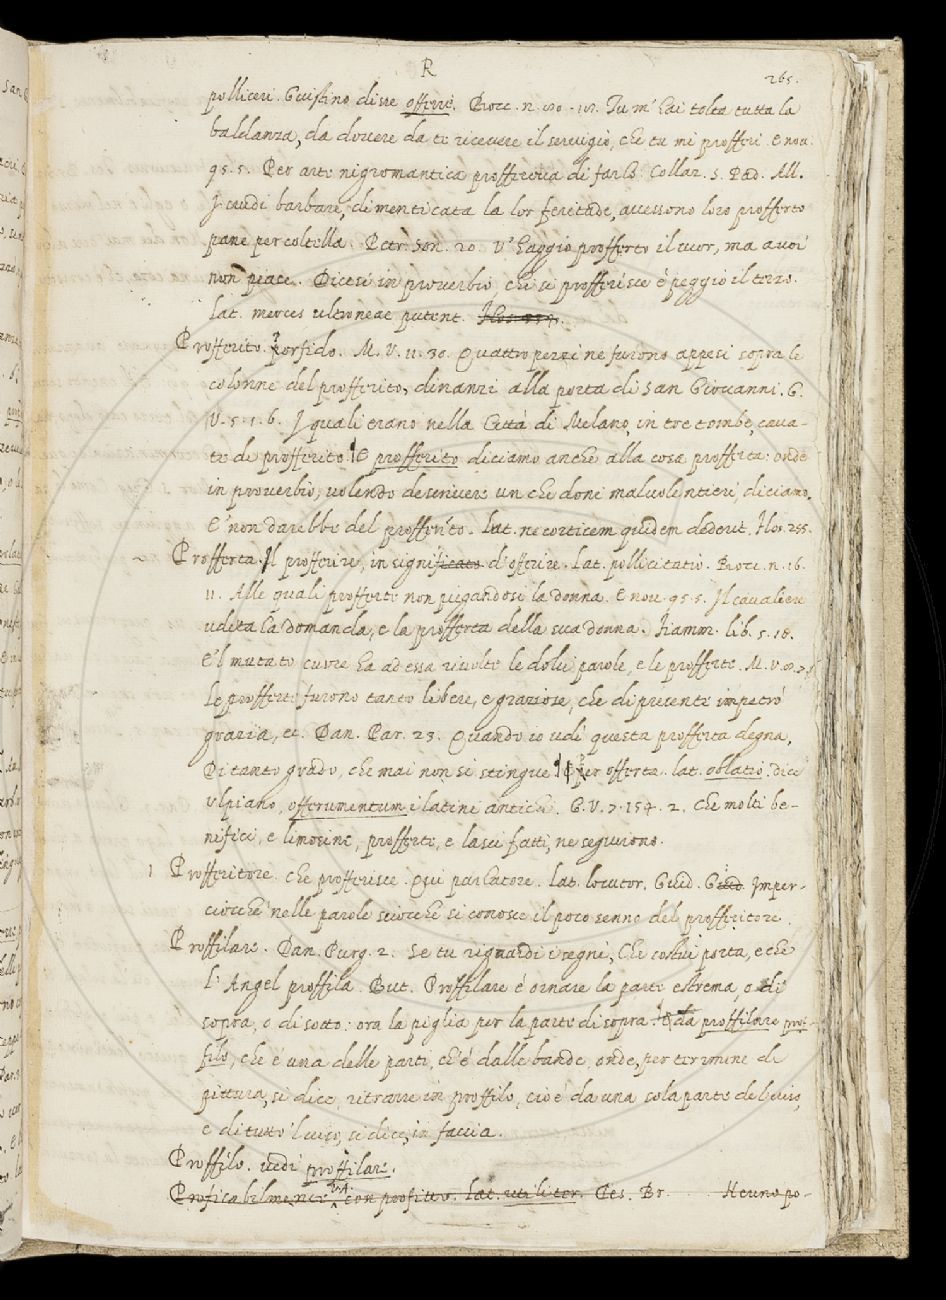 R
265.
polliceri. Giustino disse offerre. Bocc. n. 80. Tu m'hai tolta tutta la
baldanza, da dovere da te ricevere il servigio, che tu mi profferi. E nou.
95. 5. Per arte nigromantica proffereva di farlo. Collaz. S. Pad. All.
I crudi barbari, dimenticata la lor feritade, accessono loro profferto
pane per coltella. Petr. Son. 20. V'haggio profferto il cuor, ma a voi
non piace. Dicesi in proverbio, chi si profferisce è peggio il terzo.
Lat. merces ultroneae putent.
Profferito. porfido. M. V. 11. 30. Quattro pezzi ne furono appesi sopra le
colonne del profferito, dinanzi alla porta di San Giovanni. G.
V. 5. 1. 6. I quali erano nella Città di Melano, in tre tombe, cava-
te di profferito. E profferito diciamo anche alla cosa profferta: onde
in proverbio, volendo descrivere un che doni malvolentieri, diciamo,
E' non darebbe del profferito. Lat. ne corticem quidem dederit. Flos 255.
Profferta. Il profferire, in significato d'offerire. Lat. pollicitatio. Bocc. n. 16.
11. Alle quali profferte non piegandosi la donna. E nou. 95. 5. Il cavaliere
udita la domanda, e la profferta della sua donna. Fiamm. lib. 5. 18.
E'l mutato cuore ha ad essa rivolte le dolci parole, e le profferte. M. V. 8.
Le profferte furono tanto libere, e graziose, che di presente impetrò
grazia, ec. Dan. Par. 23. Quando io udi questa profferta degna,
Di tanto grado, che mai non si stingue. Per offerta. lat. oblatio. dice
Ulpiano, offerumentum i latini antichi. G. V. 7. 154. 2. Che molti be-
nifici, e limosine, profferte, e lasci fatti, ne seguirono.
1 Profferitore. che profferisce. Qui parlatore. Lat. locutor. Guid. G. Imper-
ciocchè nelle parole sciocche si conosce il poco senno del profferitore.
Proffilare. Dan. Purg. 2. Se tu riguardi i segni, Che costui porta, e che
l'Angel proffila. But. Proffilare è ornare la parte estrema, o di
sopra, o di sotto: ora la piglia per la parte di sopra. E da proffilare prof-
filo, che è una delle parti, ch'è dalle bande, onde, per termine di
pittura, si dice, ritrarre in proffilo, cioè da una sola parte del viso,
e di tutto'l viso, si dice, in faccia.
Proffilo. vedi proffilare.
Proficabilmente con profitto. Lat. utiliter. Tes. Br. Neuno po-